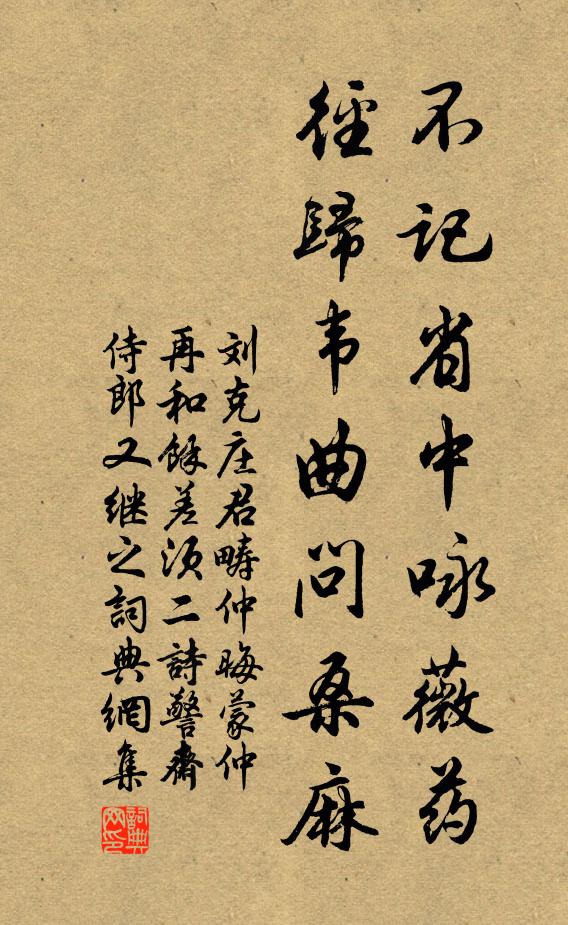 不记省中咏薇药
径歸韦曲问桑麻
刘克庄君畴仲晦蒙仲
再和餘差须二詩警齋
侍郎又继之詞典網集
詞典网印